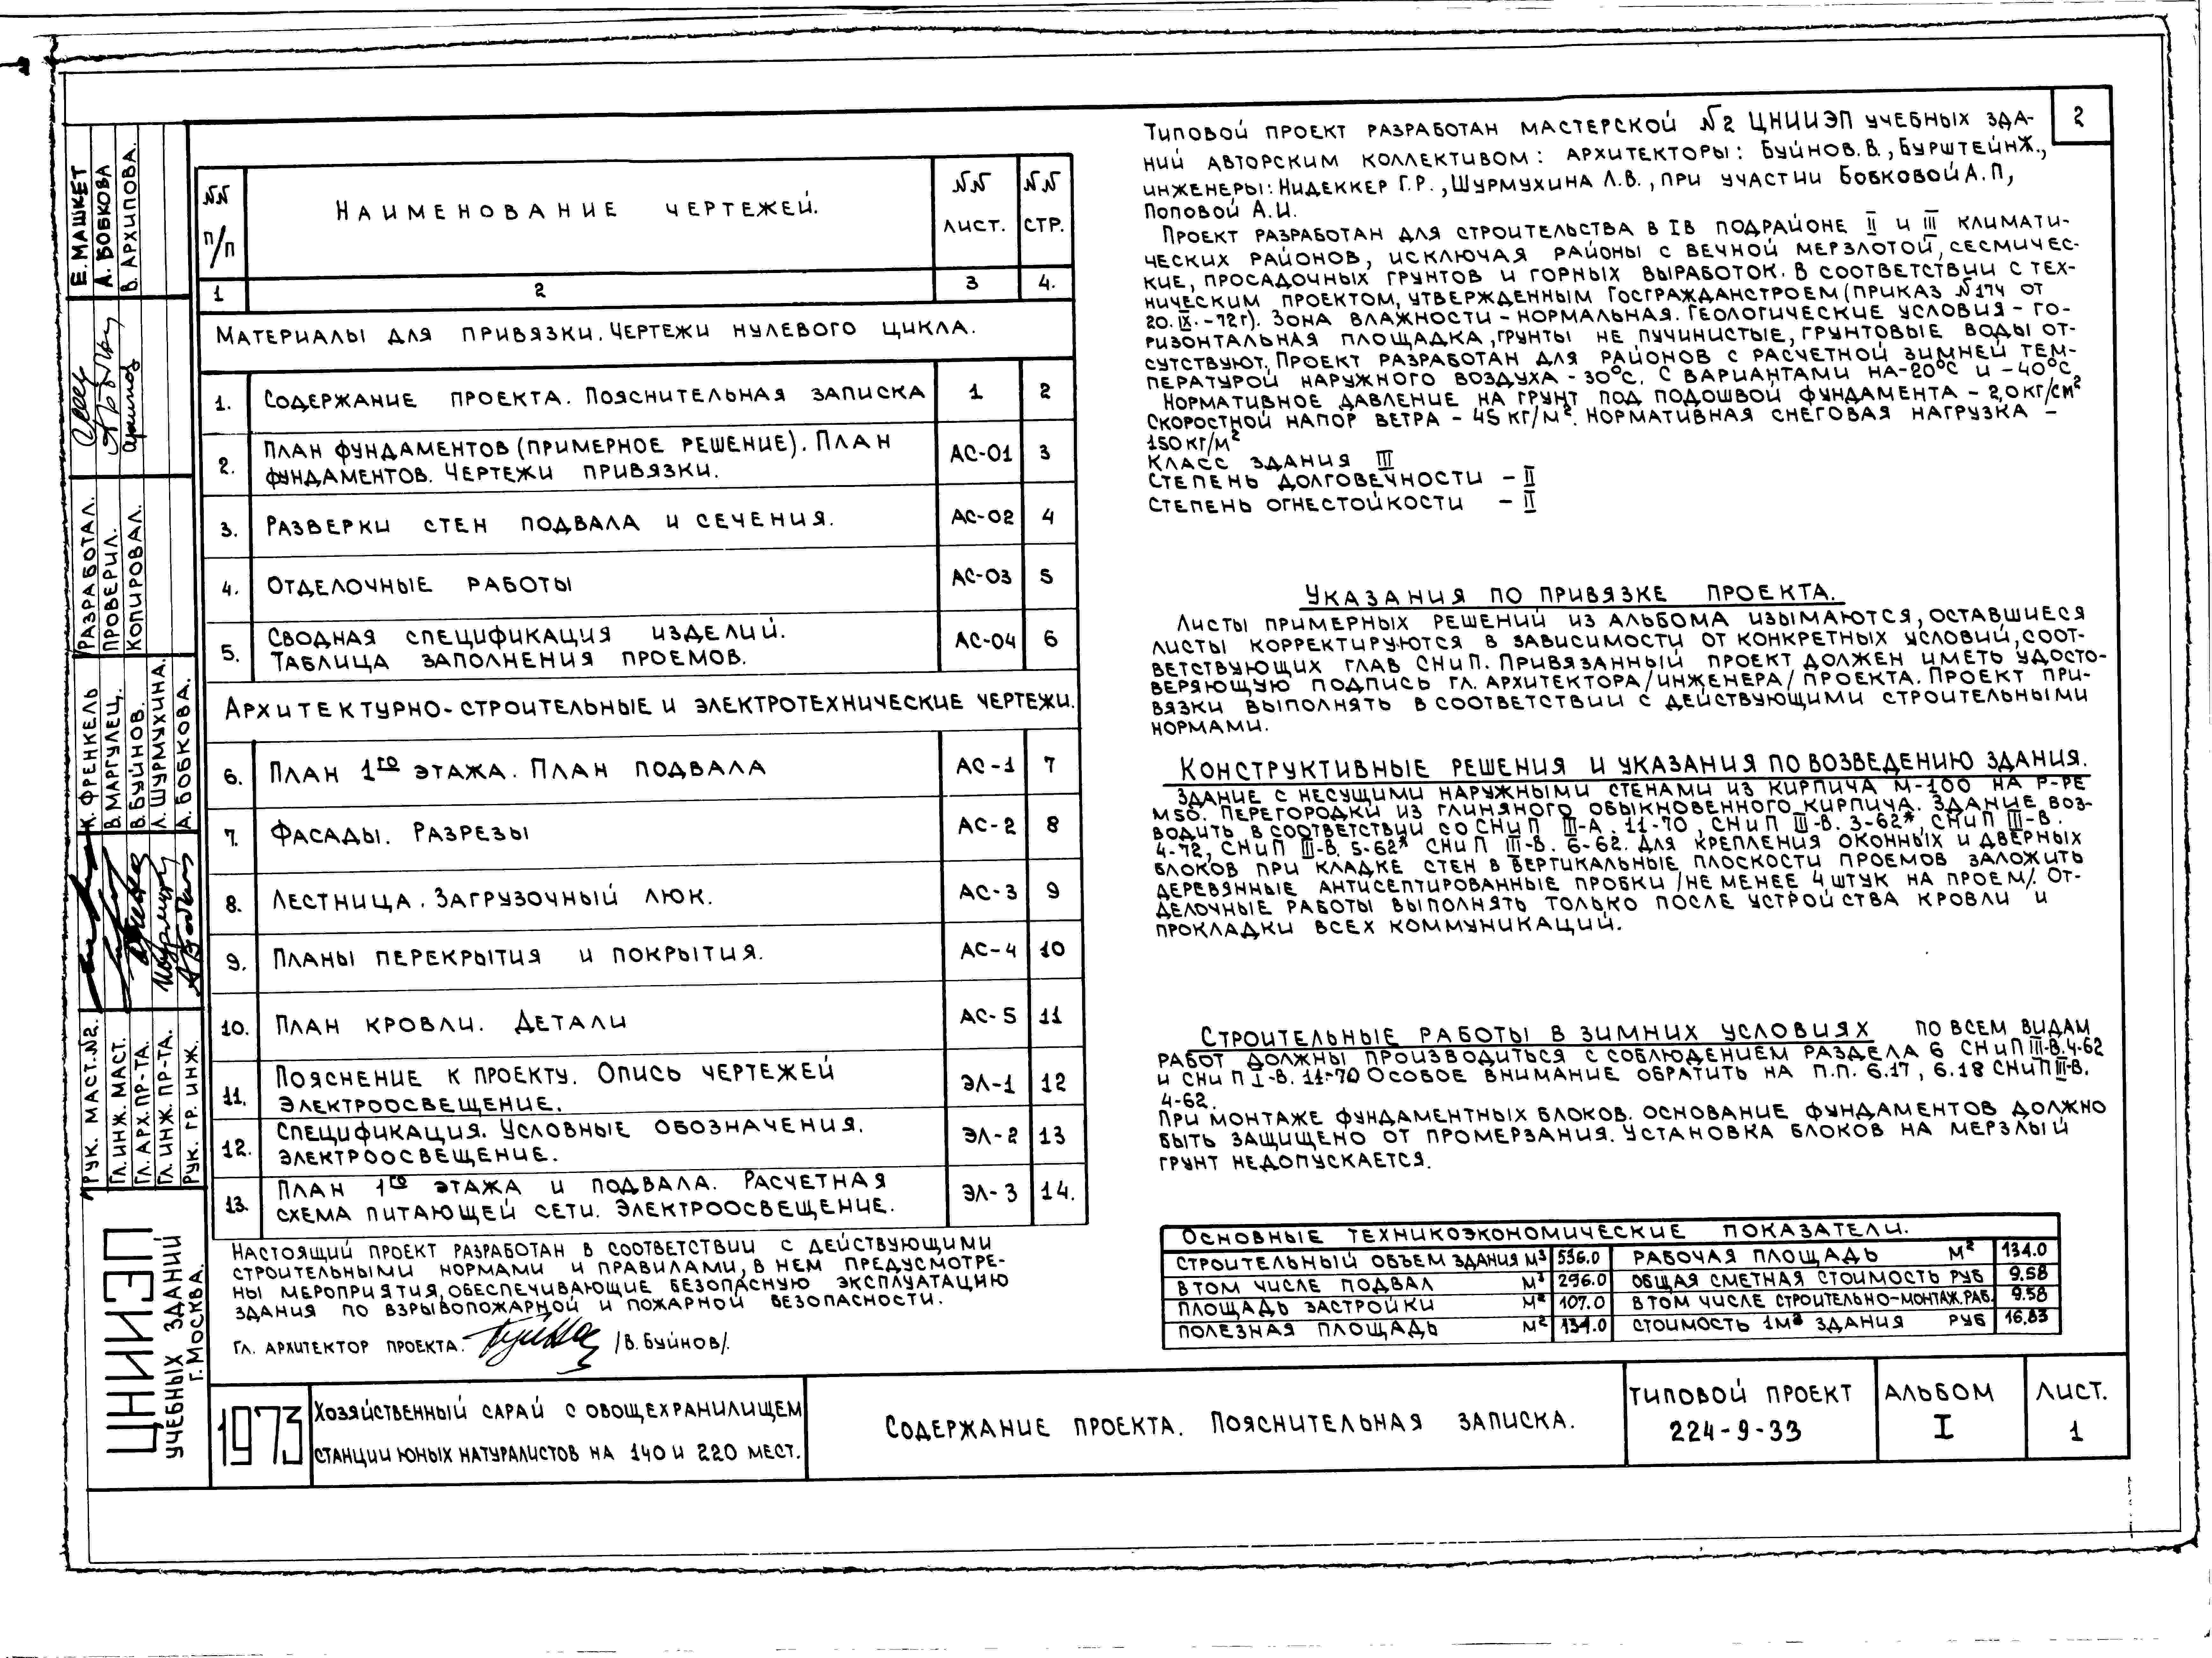 2
Е. МАШКЕТ
А. БОБКОВА
В. АРХИПОВА.
РАЗРАБОТАЛ.
ПРОВЕРИЛ.
КОПИРОВАЛ.
К. ФРЕНКЕЛЬ
В. МАРГУЛЕЦ.
В. БУЙНОВ.
Л. ШУРМУХИНА.
А. БОБКОВА.
РУК. МАСТ. №2.
ГЛ. ИНЖ. МАСТ.
ГЛ. АРХ. ПР-ТА.
ГЛ. ИНЖ. ПР-ТА.
РУК. ГР. ИНЖ.
ЦНИИЭП
УЧЕБНЫХ ЗДАНИЙ
Г. МОСКВА.
№№ П/П НАИМЕНОВАНИЕ ЧЕРТЕЖЕЙ. №№ ЛИСТ. №№ СТР.
1 2 3 4.
МАТЕРИАЛЫ ДЛЯ ПРИВЯЗКИ. ЧЕРТЕЖИ НУЛЕВОГО ЦИКЛА.
1. СОДЕРЖАНИЕ ПРОЕКТА. ПОЯСНИТЕЛЬНАЯ ЗАПИСКА 1 2
2. ПЛАН ФУНДАМЕНТОВ (ПРИМЕРНОЕ РЕШЕНИЕ). ПЛАН
ФУНДАМЕНТОВ. ЧЕРТЕЖИ ПРИВЯЗКИ. АС-01 3
3. РАЗВЕРКИ СТЕН ПОДВАЛА И СЕЧЕНИЯ. АС-02 4
4. ОТДЕЛОЧНЫЕ РАБОТЫ АС-03 5
5. СВОДНАЯ СПЕЦИФИКАЦИЯ ИЗДЕЛИЙ.
ТАБЛИЦА ЗАПОЛНЕНИЯ ПРОЕМОВ. АС-04 6
АРХИТЕКТУРНО-СТРОИТЕЛЬНЫЕ И ЭЛЕКТРОТЕХНИЧЕСКИЕ ЧЕРТЕЖИ.
6. ПЛАН 1ГО ЭТАЖА. ПЛАН ПОДВАЛА АС-1 7
7. ФАСАДЫ. РАЗРЕЗЫ АС-2 8
8. ЛЕСТНИЦА. ЗАГРУЗОЧНЫЙ ЛЮК. АС-3 9
9. ПЛАНЫ ПЕРЕКРЫТИЯ И ПОКРЫТИЯ. АС-4 10
10. ПЛАН КРОВЛИ. ДЕТАЛИ АС-5 11
11. ПОЯСНЕНИЕ К ПРОЕКТУ. ОПИСЬ ЧЕРТЕЖЕЙ
ЭЛЕКТРООСВЕЩЕНИЕ. ЭЛ-1 12
12. СПЕЦИФИКАЦИЯ. УСЛОВНЫЕ ОБОЗНАЧЕНИЯ.
ЭЛЕКТРООСВЕЩЕНИЕ. ЭЛ-2 13
13. ПЛАН 1ГО ЭТАЖА И ПОДВАЛА. РАСЧЕТНАЯ
СХЕМА ПИТАЮЩЕЙ СЕТИ. ЭЛЕКТРООСВЕЩЕНИЕ. ЭЛ-3 14.
НАСТОЯЩИЙ ПРОЕКТ РАЗРАБОТАН В СООТВЕТСТВИИ С ДЕЙСТВУЮЩИМИ
СТРОИТЕЛЬНЫМИ НОРМАМИ И ПРАВИЛАМИ, В НЕМ ПРЕДУСМОТРЕ-
НЫ МЕРОПРИЯТИЯ, ОБЕСПЕЧИВАЮЩИЕ БЕЗОПАСНУЮ ЭКСПЛУАТАЦИЮ
ЗДАНИЯ ПО ВЗРЫВОПОЖАРНОЙ И ПОЖАРНОЙ БЕЗОПАСНОСТИ.
ГЛ. АРХИТЕКТОР ПРОЕКТА. /В. БУЙНОВ/.
ТИПОВОЙ ПРОЕКТ РАЗРАБОТАН МАСТЕРСКОЙ №2 ЦНИИЭП УЧЕБНЫХ ЗДА-
НИЙ АВТОРСКИМ КОЛЛЕКТИВОМ: АРХИТЕКТОРЫ: БУЙНОВ. В., БУРШТЕЙН Ж.,
ИНЖЕНЕРЫ: НИДЕККЕР Г.Р., ШУРМУХИНА Л.В., ПРИ УЧАСТИИ БОБКОВОЙ А.П,
ПОПОВОЙ А.И.
ПРОЕКТ РАЗРАБОТАН ДЛЯ СТРОИТЕЛЬСТВА В IВ ПОДРАЙОНЕ II И III КЛИМАТИ-
ЧЕСКИХ РАЙОНОВ, ИСКЛЮЧАЯ РАЙОНЫ С ВЕЧНОЙ МЕРЗЛОТОЙ, СЕСМИЧЕС-
КИЕ, ПРОСАДОЧНЫХ ГРУНТОВ И ГОРНЫХ ВЫРАБОТОК. В СООТВЕТСТВИИ С ТЕХ-
НИЧЕСКИМ ПРОЕКТОМ, УТВЕРЖДЕННЫМ ГОСГРАЖДАНСТРОЕМ (ПРИКАЗ №174 ОТ
20. IX. -72Г). ЗОНА ВЛАЖНОСТИ - НОРМАЛЬНАЯ. ГЕОЛОГИЧЕСКИЕ УСЛОВИЯ - ГО-
РИЗОНТАЛЬНАЯ ПЛОЩАДКА, ГРУНТЫ НЕ ПУЧИНИСТЫЕ, ГРУНТОВЫЕ ВОДЫ ОТ-
СУТСТВУЮТ. ПРОЕКТ РАЗРАБОТАН ДЛЯ РАЙОНОВ С РАСЧЕТНОЙ ЗИМНЕЙ ТЕМ-
ПЕРАТУРОЙ НАРУЖНОГО ВОЗДУХА - 30°С. С ВАРИАНТАМИ НА -20°С И -40°С.
НОРМАТИВНОЕ ДАВЛЕНИЕ НА ГРУНТ ПОД ПОДОШВОЙ ФУНДАМЕНТА - 2,0 КГ/СМ²
СКОРОСТНОЙ НАПОР ВЕТРА - 45 КГ/М². НОРМАТИВНАЯ СНЕГОВАЯ НАГРУЗКА -
150 КГ/М²
КЛАСС ЗДАНИЯ III
СТЕПЕНЬ ДОЛГОВЕЧНОСТИ - II
СТЕПЕНЬ ОГНЕСТОЙКОСТИ - II
УКАЗАНИЯ ПО ПРИВЯЗКЕ ПРОЕКТА.
ЛИСТЫ ПРИМЕРНЫХ РЕШЕНИЙ ИЗ АЛЬБОМА ИЗЫМАЮТСЯ, ОСТАВШИЕСЯ
ЛИСТЫ КОРРЕКТИРУЮТСЯ В ЗАВИСИМОСТИ ОТ КОНКРЕТНЫХ УСЛОВИЙ, СООТ-
ВЕТСТВУЮЩИХ ГЛАВ СНиП. ПРИВЯЗАННЫЙ ПРОЕКТ ДОЛЖЕН ИМЕТЬ УДОСТО-
ВЕРЯЮЩУЮ ПОДПИСЬ ГЛ. АРХИТЕКТОРА /ИНЖЕНЕРА/ ПРОЕКТА. ПРОЕКТ ПРИ-
ВЯЗКИ ВЫПОЛНЯТЬ В СООТВЕТСТВИИ С ДЕЙСТВУЮЩИМИ СТРОИТЕЛЬНЫМИ
НОРМАМИ.
КОНСТРУКТИВНЫЕ РЕШЕНИЯ И УКАЗАНИЯ ПО ВОЗВЕДЕНИЮ ЗДАНИЯ.
ЗДАНИЕ С НЕСУЩИМИ НАРУЖНЫМИ СТЕНАМИ ИЗ КИРПИЧА М-100 НА Р-РЕ
М50. ПЕРЕГОРОДКИ ИЗ ГЛИНЯНОГО ОБЫКНОВЕННОГО КИРПИЧА. ЗДАНИЕ ВОЗ-
ВОДИТЬ В СООТВЕТСТВИИ СО СНиП III-А. 11-70, СНиП III-В. 3-62*, СНиП III-В.
4-72, СНиП III-В. 5-62* СНиП III-В. 6-62. ДЛЯ КРЕПЛЕНИЯ ОКОННЫХ И ДВЕРНЫХ
БЛОКОВ ПРИ КЛАДКЕ СТЕН В ВЕРТИКАЛЬНЫЕ ПЛОСКОСТИ ПРОЕМОВ ЗАЛОЖИТЬ
ДЕРЕВЯННЫЕ АНТИСЕПТИРОВАННЫЕ ПРОБКИ /НЕ МЕНЕЕ 4 ШТУК НА ПРОЕМ/. ОТ-
ДЕЛОЧНЫЕ РАБОТЫ ВЫПОЛНЯТЬ ТОЛЬКО ПОСЛЕ УСТРОЙСТВА КРОВЛИ И
ПРОКЛАДКИ ВСЕХ КОММУНИКАЦИЙ.
СТРОИТЕЛЬНЫЕ РАБОТЫ В ЗИМНИХ УСЛОВИЯХ ПО ВСЕМ ВИДАМ
РАБОТ ДОЛЖНЫ ПРОИЗВОДИТЬСЯ С СОБЛЮДЕНИЕМ РАЗДЕЛА 6 СНиП III-В. 4-62
И СНиП I-В. 11-70 ОСОБОЕ ВНИМАНИЕ ОБРАТИТЬ НА П.П. 6.17, 6.18 СНиП III-В.
4-62.
ПРИ МОНТАЖЕ ФУНДАМЕНТНЫХ БЛОКОВ. ОСНОВАНИЕ ФУНДАМЕНТОВ ДОЛЖНО
БЫТЬ ЗАЩИЩЕНО ОТ ПРОМЕРЗАНИЯ. УСТАНОВКА БЛОКОВ НА МЕРЗЛЫЙ
ГРУНТ НЕДОПУСКАЕТСЯ.
ОСНОВНЫЕ ТЕХНИКОЭКОНОМИЧЕСКИЕ ПОКАЗАТЕЛИ.
СТРОИТЕЛЬНЫЙ ОБЪЕМ ЗДАНИЯ М³ 536.0 РАБОЧАЯ ПЛОЩАДЬ М² 134.0
В ТОМ ЧИСЛЕ ПОДВАЛ М³ 296.0 ОБЩАЯ СМЕТНАЯ СТОИМОСТЬ РУБ 9.58
ПЛОЩАДЬ ЗАСТРОЙКИ М² 107.0 В ТОМ ЧИСЛЕ СТРОИТЕЛЬНО-МОНТАЖ. РАБ. 9.58
ПОЛЕЗНАЯ ПЛОЩАДЬ М² 134.0 СТОИМОСТЬ 1М³ ЗДАНИЯ РУБ 16,83
1973
ХОЗЯЙСТВЕННЫЙ САРАЙ С ОВОЩЕХРАНИЛИЩЕМ
СТАНЦИИ ЮНЫХ НАТУРАЛИСТОВ НА 140 И 220 МЕСТ.
СОДЕРЖАНИЕ ПРОЕКТА. ПОЯСНИТЕЛЬНАЯ ЗАПИСКА.
ТИПОВОЙ ПРОЕКТ
224-9-33
АЛЬБОМ
I
ЛИСТ.
1